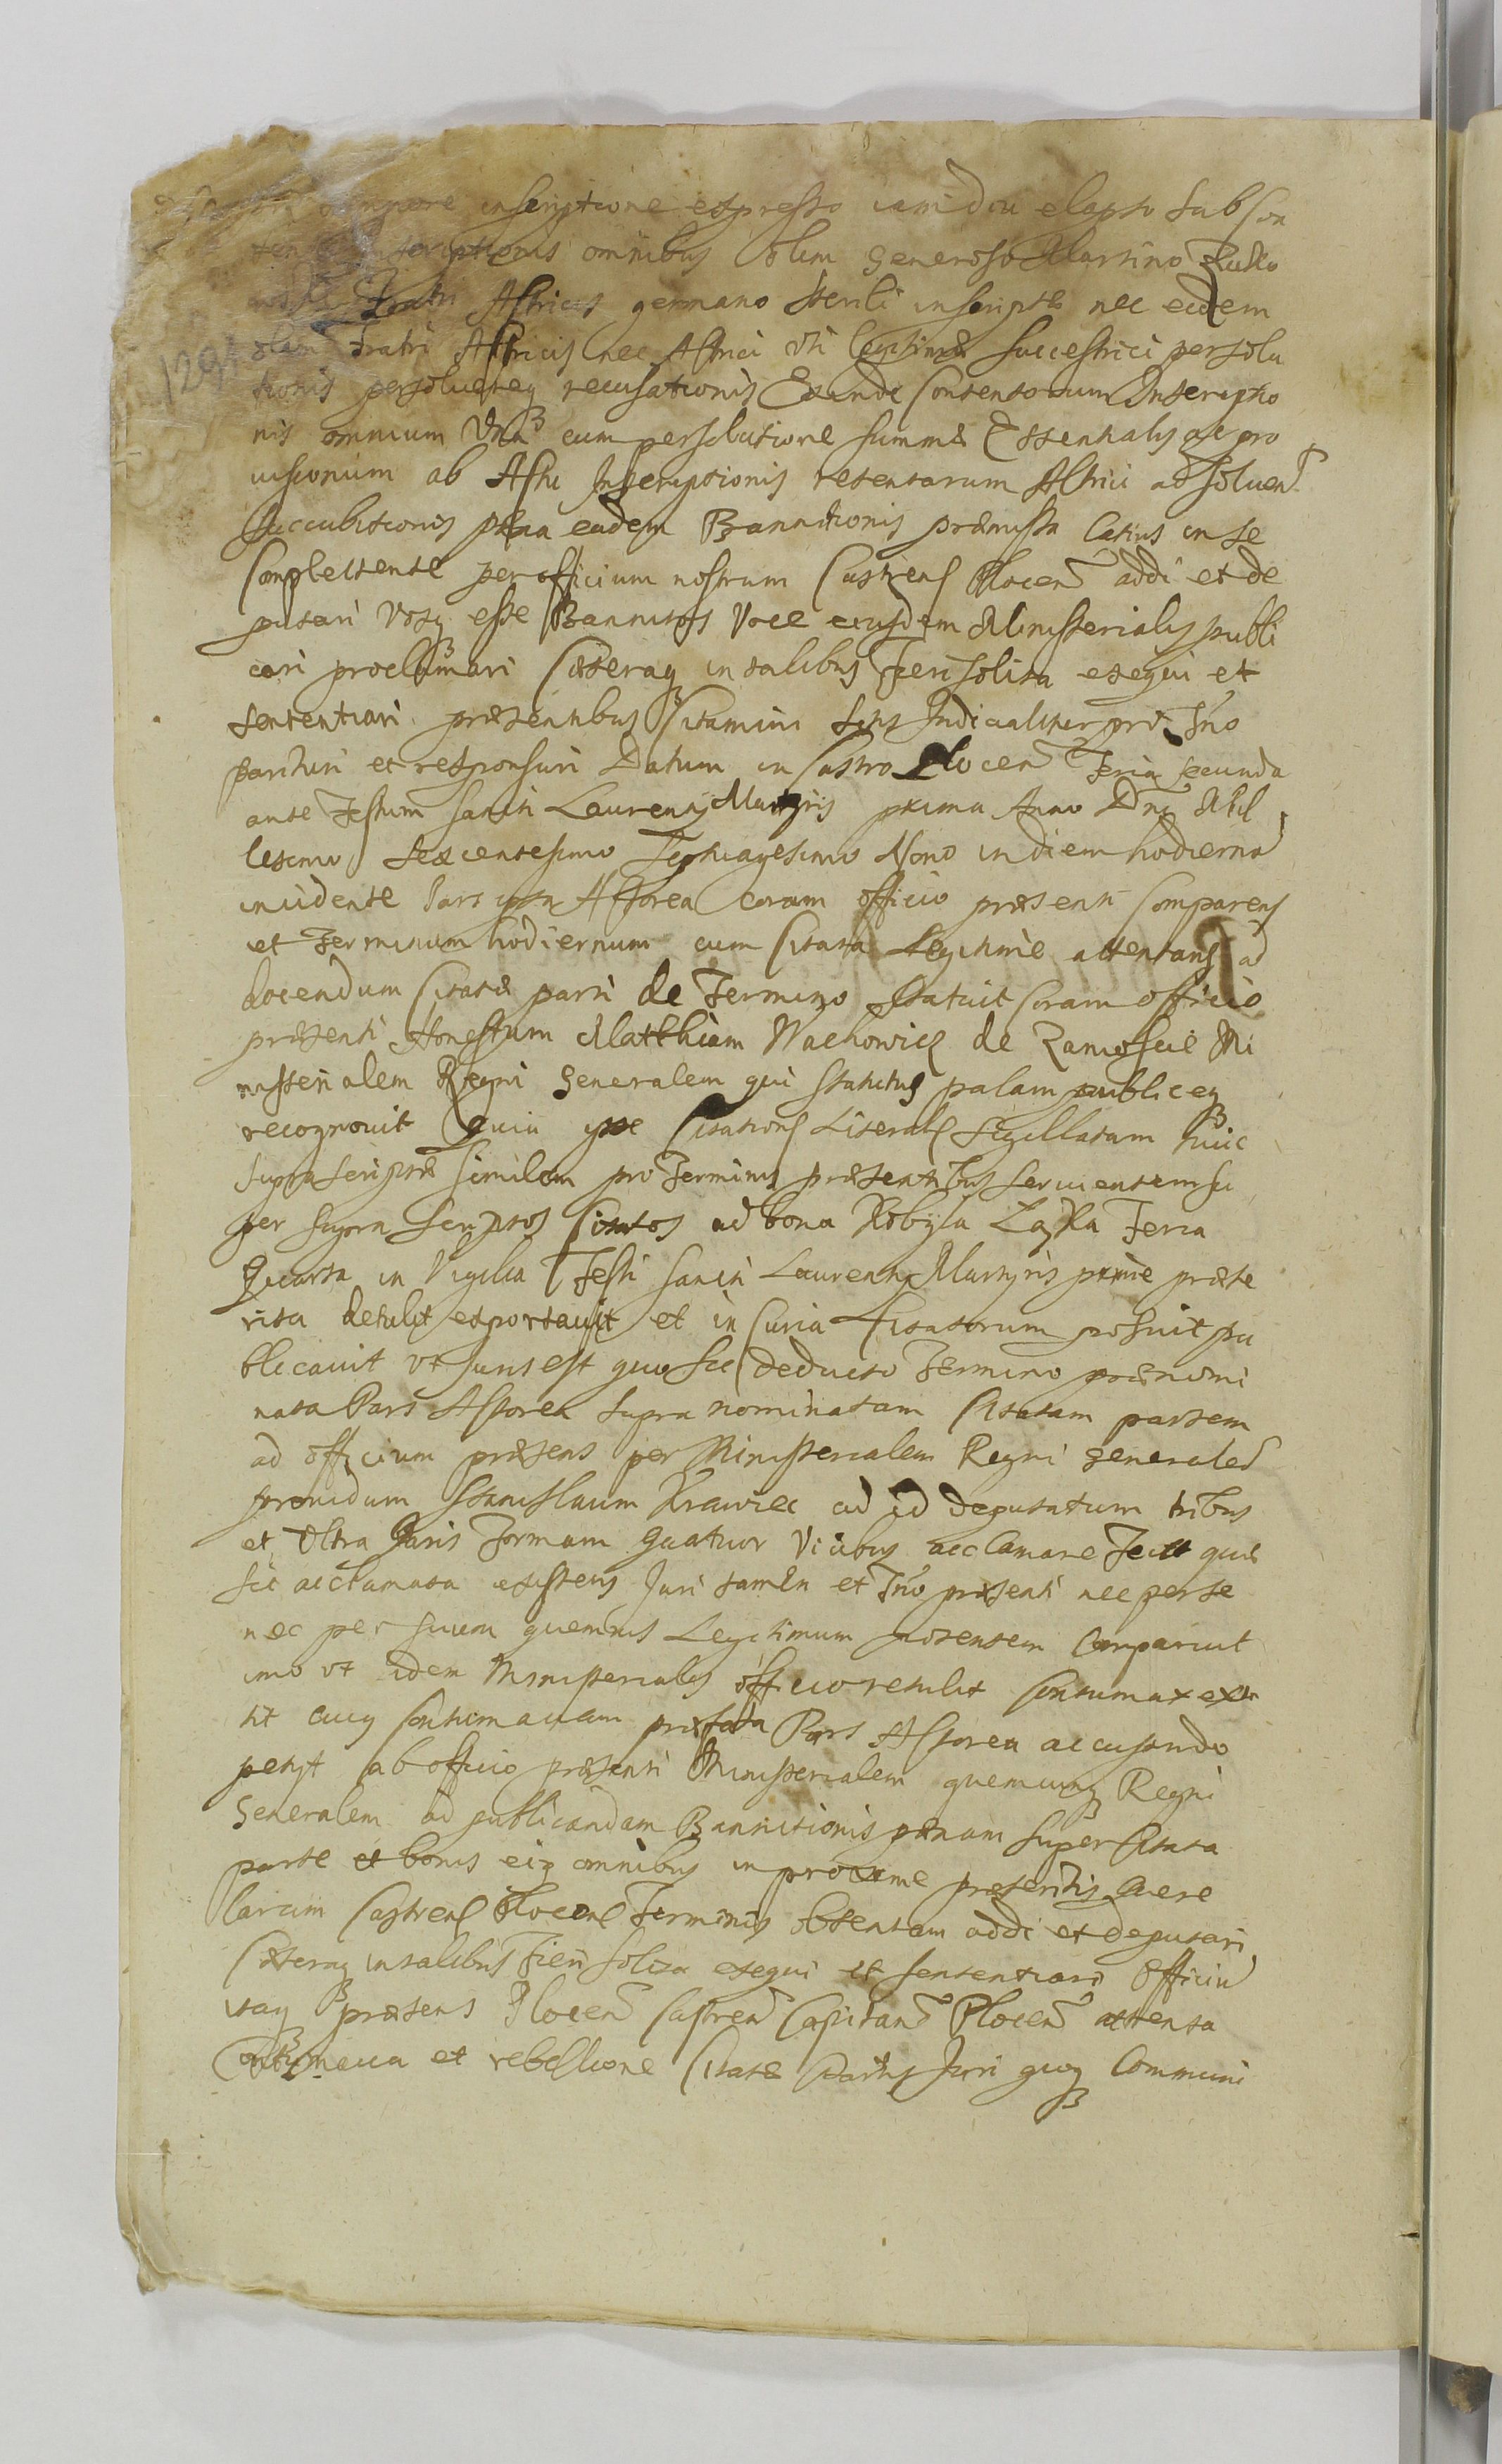 tempore inscriptione expresso iamdiu elapso sub con
tentis inscriptionis omnibus olim Generoso Martino Rutko
wski Fratri Actricis germano sterili inscriptæ nec eidem
olim Fratri Actricis nec Actrici vti legitimæ successtrici persolu
tionis persoluereq recusationis Exinde Contentorum Inscriptio
nis omnium Vna cum persolutione summæ Essentialis ac pro
uisionum ab Actu Inscriptionis retentarum Actrici adsoluen
succubitionis pœna eadem Bannitionis præmissa latius in se
Complectente per officium nostrum Castrens Plocen addi et de
putari Vosq esse Bannitos Voce eiusdem Ministerialis publi
cari proclamari Cæteraq in talibus Fieri solita exequi et
sententiari præsentibus Citamini sitis Judicialiter pro Tno
parituri et responsuri Datum in Castro Plocen Feria secunda
ante Festum Sancti Laurentij Martyris proxima Anno Dni Mil
lesimo Sexcentesimo Septuagesimo Nono in diem hodierna
incidente Pars ipsa Actorea coram officio præsenti Comparens
et Terminum hodiernum cum Citata Legitime attentans ad
docendum Citatæ parti de Termino Statuit Coram officio
præsenti Honestum Matthiam Wachowicz de Zamoscie Mi
nisterialem Regni Generalem qui Statutus palam publiceq
recognouit Quia ipse Citationis Literalis sigillatam huic
supra scriptæ similem pro Terminis præsentibus seruientem su
per supra scriptos Citatos ad bona Kobyla Łąka Feria
Quarta in Vigilia Festi Sancti Laurentij Martyris proxime præte
rita detulit exportauit et in Curia Citatorum posuit pu
blicauit vt Juris est quo sic deducto Termino prænomi
nata Pars Actorea supra nominatam Citatam partem
ad officium præsens per Ministerialem Regni Generalem
prouidum Stanislaum Krawiec ad id deputatum tribus
et Vltra Juris Formam Quatuor Vicibus acclamare Fecit quæ
sic acclamata existens Juri tamen et Tno præsenti nec per se
nec per suum quemuis Legitimum potentem Comparuit
imo vt idem Ministerialis officio retulit Contumax exti
tit cuiq Contumaciam præfata Pars Actorea accusando
petyt ab officio præsenti Ministerialem quemcunq Regni
Generalem ad publicandam Bannitionis pœnam super Citata
parte et bonis eiq omnibus in proxime præteritis Quere
larum Castrens Plocens Terminis obtentam addi et deputari
Cæteraq in talibus Fieri solita exequi et sententiari Officiu
itaq præsens Plocen Castren Capitan Plocen attenta
Contumacia et rebellione Citatæ Partis Juri quoq Communi